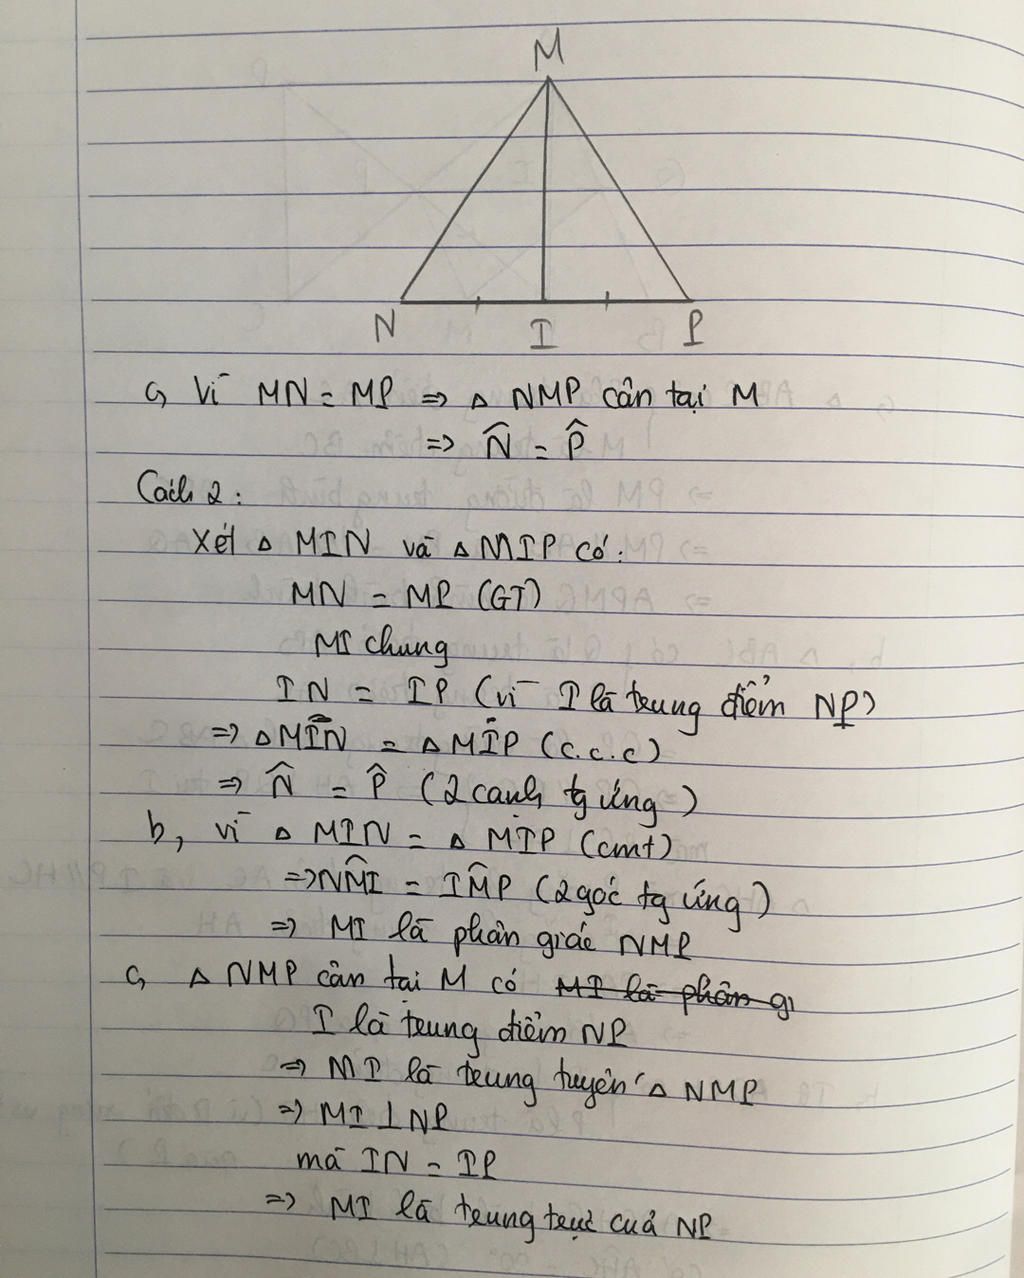 M
N I P
a, Vì MN = MP => △ NMP cân tại M
=> N̂ = P̂
Cách 2:
Xét △ MIN và △ MIP có:
MN = MP (GT)
MI chung
IN = IP (vì I là trung điểm NP)
=> △MIN = △MIP (c.c.c)
=> N̂ = P̂ (2 cạnh tg ứng)
b, vì △ MIN = △ MIP (cmt)
=> NM̂I = IM̂P (2 góc tg ứng)
=> MI là phân giác NMP
c, △ NMP cân tại M có MI là phân gi
I là trung điểm NP
=> MI là trung tuyến △ NMP
=> MI ⊥ NP
mà IN = IP
=> MI là trung trực của NP